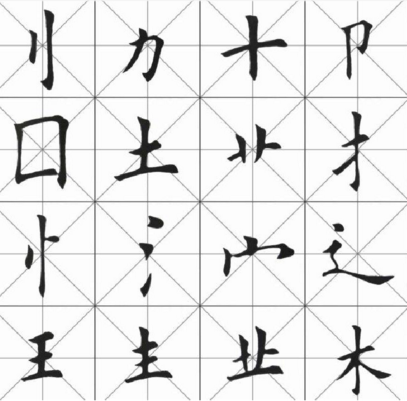 刂力十卩
囗土艹扌
忄氵宀辶
王龶业木